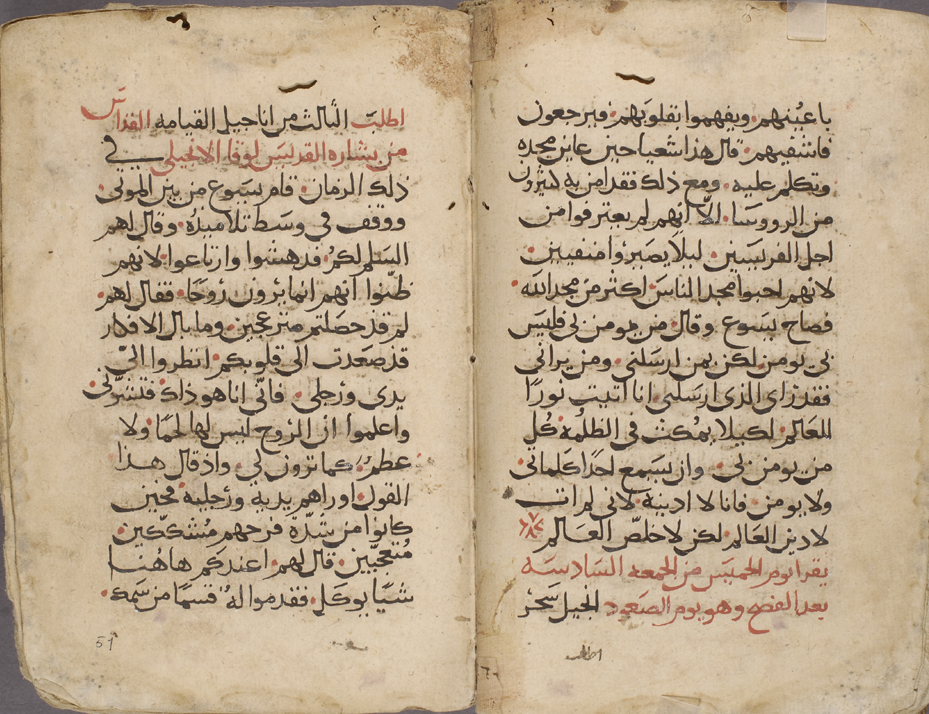 باعينهم ويفهموا بقلوبهم فيرجعون
فاشفيهم قال هذا شعيا حين عاين مجده
وتكلم عليه ومع ذلك فقد امن به كثيرون
من الرووسا الا انهم لم يعترفوا من
اجل الفريسين ليلا يصيروا منفيين
لانهم احبوا مجد الناس اكثر من مجد الله
فصاح يسوع وقال من يومن بي فليس
بي يومن لكن بمن ارسلني ومن يراني
فقد راى الذي ارسلني انا اتيت نورًا
للعالم لكيلا يمكث في الظلمة كل
من يومن بي وان يسمع احدًا كلماتي
ولا يومن فانا لا ادينه لاني لم ات
لادين العالم لكن لاخلص العالم
يقرا يوم الخميس من الجمعه السادسه
بعد الفصح وهو يوم الصعود الجيل سحر
اطلب
اطلب الثالث من اناجيل القيامه القداس
من بشاره القديس لوقا الانجيلي في
ذلك الزمان قام يسوع من بين الموتى
ووقف في وسط تلاميذه وقال لهم
السلم لكم فدهشوا وارتاعوا لانهم
ظنوا انهم انما يرون روحًا فقال لهم
لم قد حصلتم منزعجين وما بال الافكار
قد صعدت الى قلوبكم انظروا الى
يدي ورجلي فاني انا هو ذلك فتشوني
واعلموا ان الروح ليس لها لحمًا ولا
عظم كما ترون لي واذ قال هذا
القول اوراهم يديه ورجليه فحين
كانوا من شدة فرحهم متشككين
متعجبين قال لهم اعندكم هاهنا
شيا يوكل فقدموا له قسمًا من سمك
51